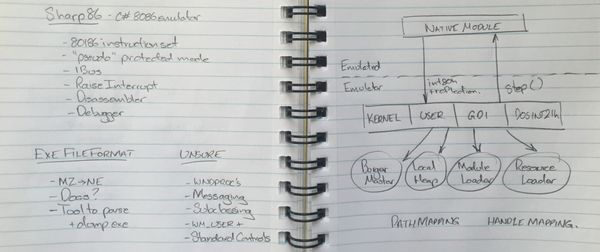 Sharp86 - C# 8086 emulator
- 80186 instruction set
- "pseudo" protected mode
- IBus
- Raise Interrupt
- Disassembler
- Debugger
EXE FILE FORMAT
- MZ → NE
- Docs?
- Tool to parse
+ dump .exe
UNSURE
- WNDPROC's
- Messaging
- Subclassing
- WM_USER+
- Standard Controls
NATIVE MODULE
Emulated
Emulator
int
+ reflection.
step()
KERNEL
USER
GDI
DOS INT 21h
Master
Local
Heap
Module
Loader
Resource
Loader
PATH MAPPING
HANDLE MAPPING.